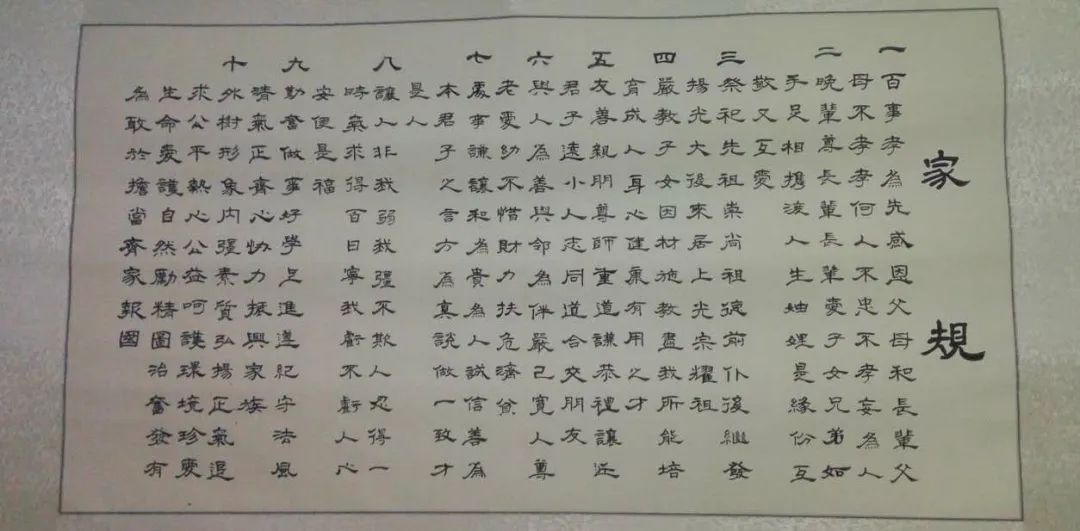 家規
一百事孝為先感恩父母和長輩父
母不孝孝何人不忠不孝妄為人
二晚輩尊長輩長輩愛子女兄弟如
手足相人生妯娌是緣份互
敬又互愛
三祭祀先祖崇尚祖德前仆後繼發
揚光大後來居上光宗耀祖
四嚴教子女因材施教盡我所能培
育成人身心健康有用之才
五友善親朋尊師重道謙恭禮讓近
君子遠小人志同道合交朋友
六與人為善與鄰為伴嚴己寬人尊
老愛幼不惜財力扶危濟貧
七處事謙讓和為貴為人誠信善為
本君子之言方為真說做一致才
是人
八讓人非我弱我強不欺人忍得一
時氣求得百日寧我虧不虧人心
安便是福
九勤奮做事好學上進遵紀守法風
清氣正齊心協力振興家族
十外樹形象內強素質弘揚正氣追
求公平熱心公益呵護環境珍愛
生命愛護自然勵精圖治奮發有
為敢於擔當齊家報國